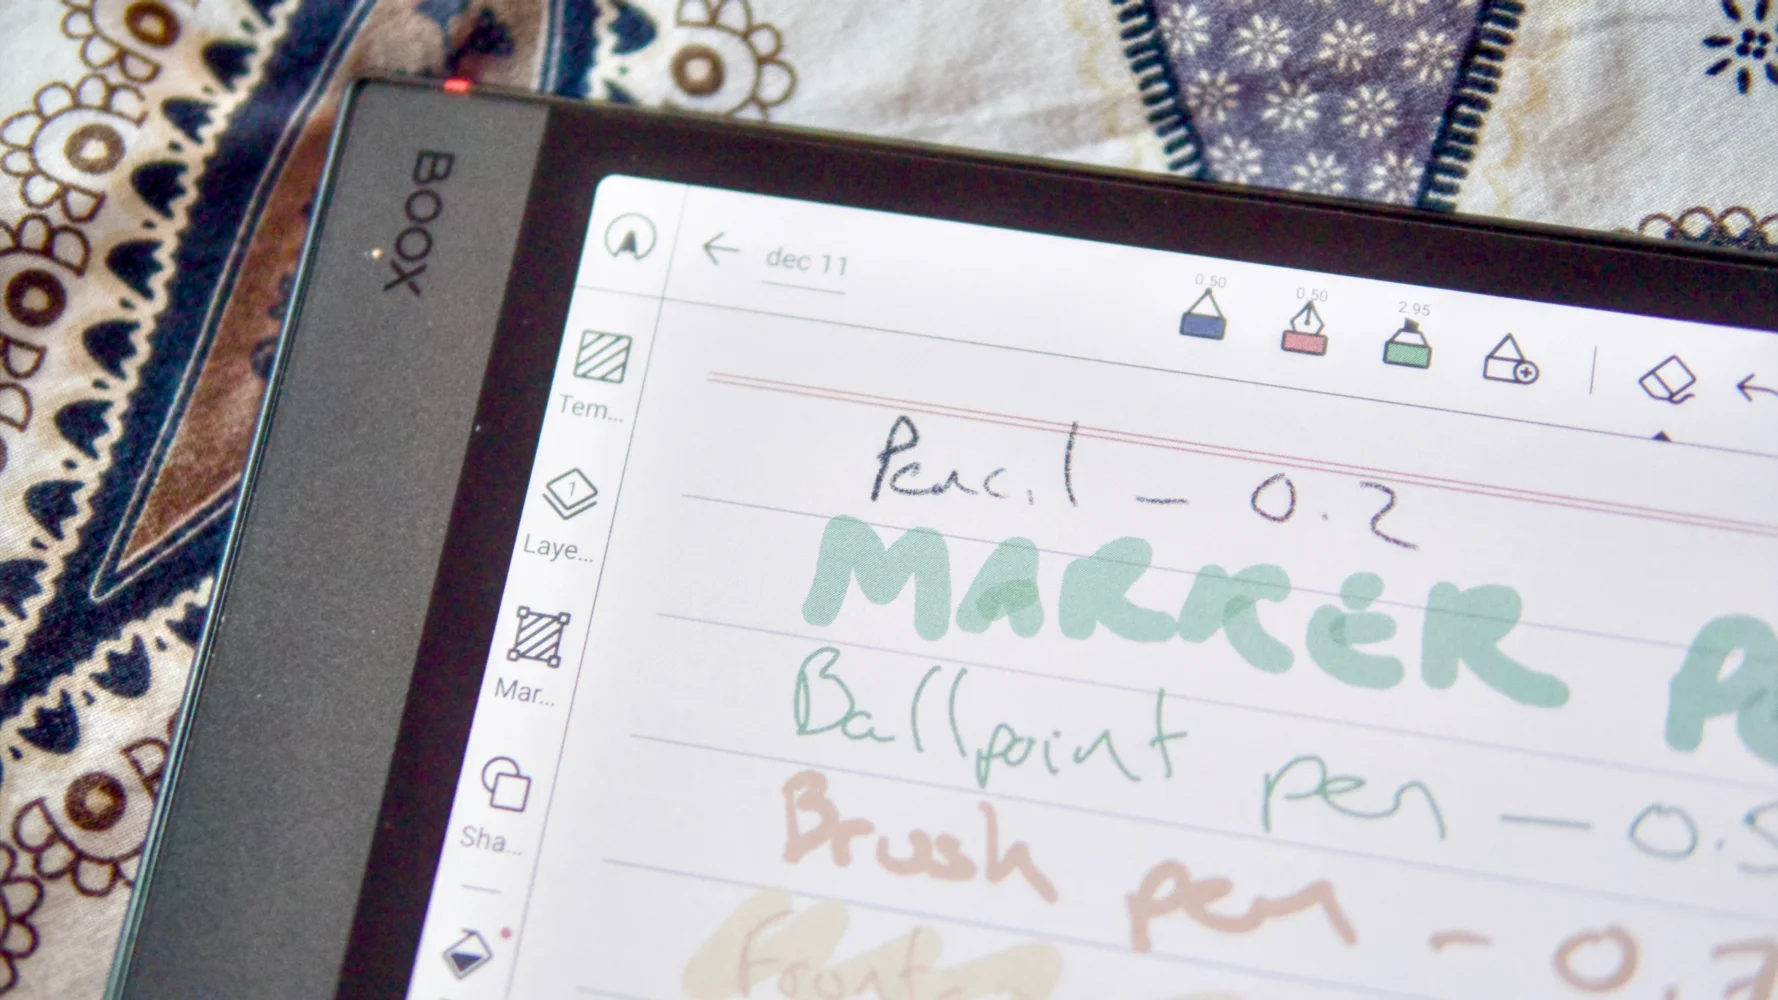 BOOX
dec 11
0.50 0.50 2.95
Tem...
1
Laye...
Mar...
Sha...
Pencil - 0.2
MARKER
Ballpoint pen - 0.
Brush pen - 0.